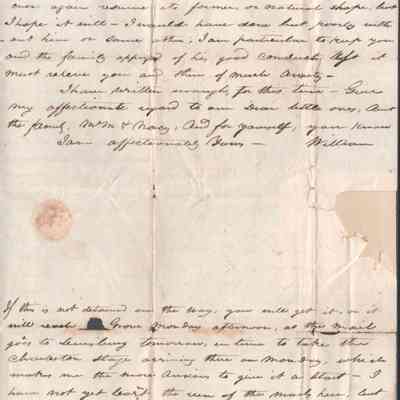 ever again resume its former or natural shape, but
I hope it will - I would have done but poorly with
out him or some other, I am particular to keep you
and the family apprized of his good conduct, as it
must releive you and them of much Anxiety -
I have written enough for this time - Give
my affectionate regard to our Dear little ones, Aunt
the family, Mr M & Nancy, And for yourself, you know
I am affectionately Yours - William
If this is not detained on the way, you will get it, or it
will reach Grove Monday afternoon, as the mail
goes to tomorrow, in time to take the
Charleston Stage arriving there on Monday, which
makes me the more Anxious to give it a start - I
have not yet the run of the mails here, but